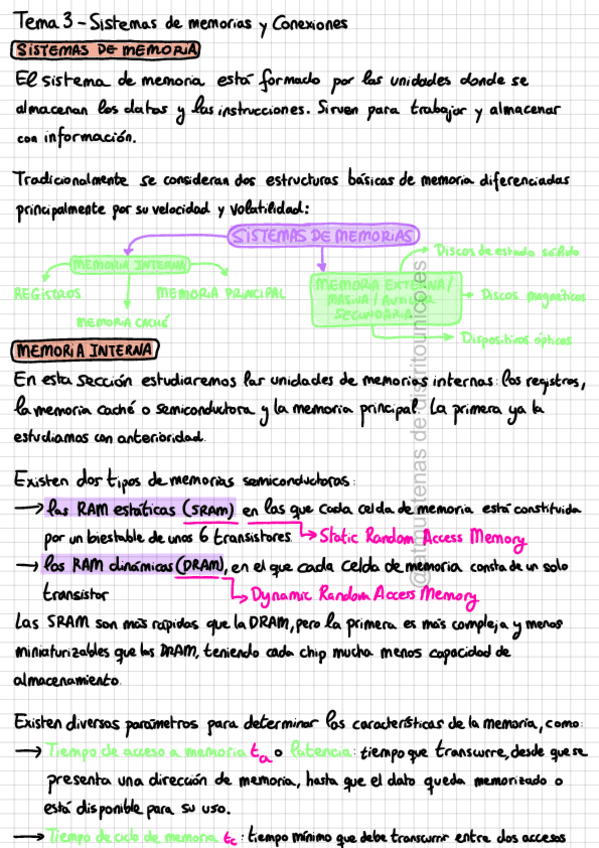 Tema 3 - Sistemas de memorias y Conexiones
SISTEMAS DE MEMORIA
El sistema de memoria está formado por las unidades donde se
almacenan los datos y las instrucciones. Sirven para trabajar y almacenar
con información.
Tradicionalmente se consideran dos estructuras básicas de memoria diferenciadas
principalmente por su velocidad y volatilidad:
SISTEMAS DE MEMORIAS
MEMORIA INTERNA
REGISTROS
MEMORIA CACHÉ
MEMORIA PRINCIPAL
MEMORIA EXTERNA/
MASIVA / AUXILIAR
SECUNDARIA
Discos de estado sólido
Discos magnéticos
Dispositivos ópticos
MEMORIA INTERNA
En esta sección estudiaremos las unidades de memorias internas: los registros,
la memoria caché o semiconductora y la memoria principal. La primera ya la
estudiamos con anterioridad.
Existen dos tipos de memorias semiconductoras:
→ las RAM estáticas (SRAM) en las que cada celda de memoria está constituida
por un biestable de unos 6 transistores. → Static Random Access Memory
→ las RAM dinámicas (DRAM), en el que cada celda de memoria consta de un solo
transistor → Dynamic Random Access Memory
Las SRAM son más rápidas que la DRAM, pero la primera es más compleja y menos
miniaturizables que las DRAM, teniendo cada chip mucha menos capacidad de
almacenamiento.
Existen diversos parámetros para determinar las características de la memoria, como:
→ Tiempo de acceso a memoria ta o latencia: tiempo que transcurre, desde que se
presenta una dirección de memoria, hasta que el dato queda memorizado o
está disponible para su uso.
→ Tiempo de ciclo de memoria tc: tiempo mínimo que debe transcurrir entre dos accesos